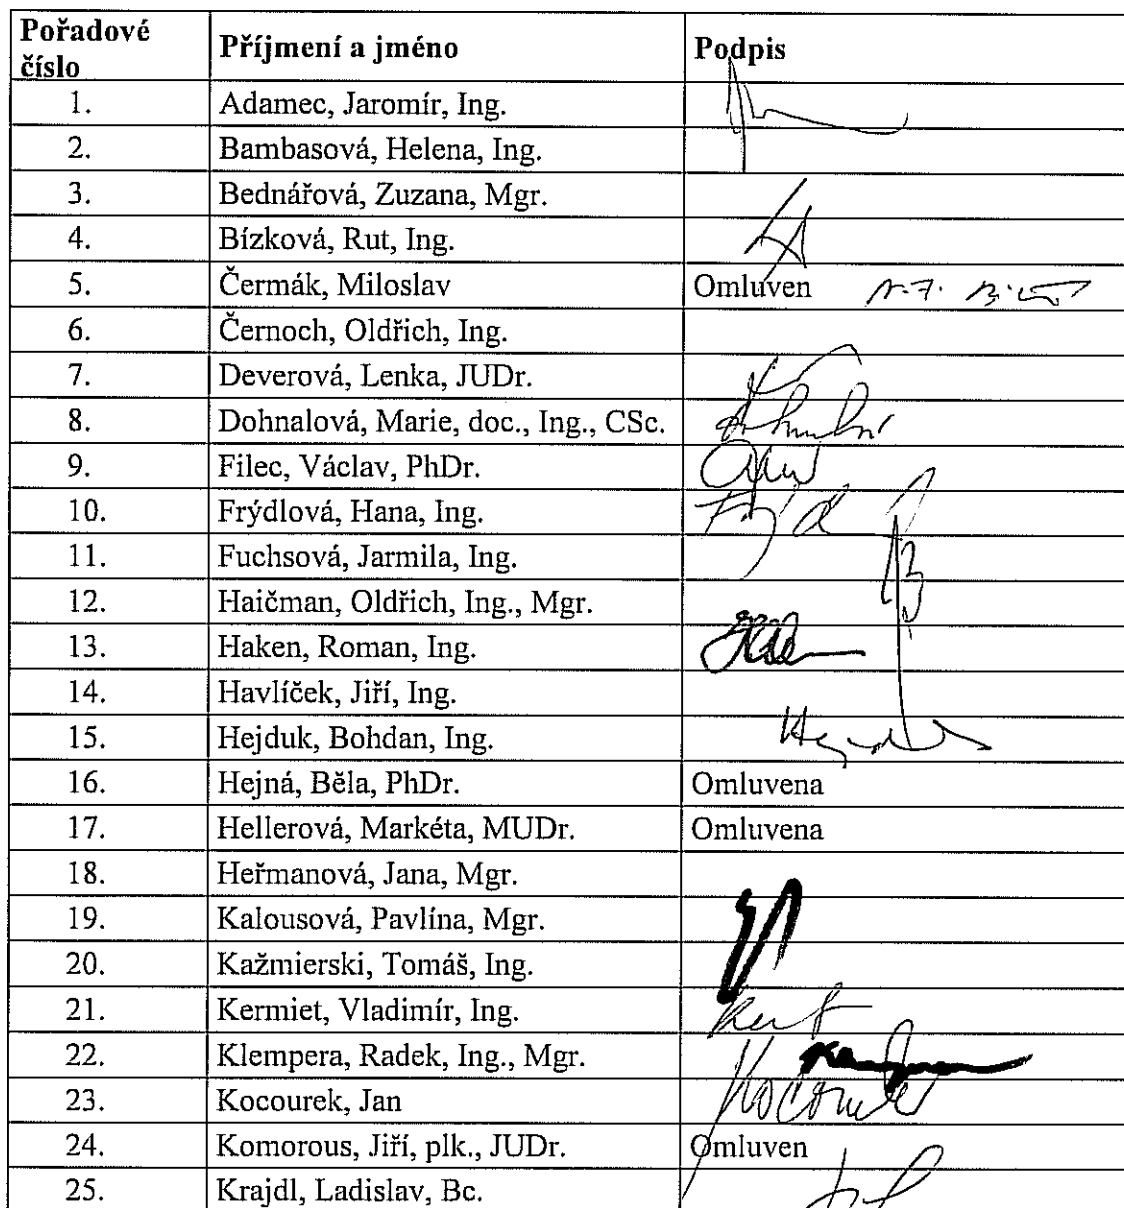 Pořadové číslo Příjmení a jméno Podpis
1. Adamec, Jaromír, Ing.
2. Bambasová, Helena, Ing.
3. Bednářová, Zuzana, Mgr.
4. Bízková, Rut, Ing.
5. Čermák, Miloslav Omluven
6. Černoch, Oldřich, Ing.
7. Deverová, Lenka, JUDr.
8. Dohnalová, Marie, doc., Ing., CSc.
9. Filec, Václav, PhDr.
10. Frýdlová, Hana, Ing.
11. Fuchsová, Jarmila, Ing.
12. Haičman, Oldřich, Ing., Mgr.
13. Haken, Roman, Ing.
14. Havlíček, Jiří, Ing.
15. Hejduk, Bohdan, Ing.
16. Hejná, Běla, PhDr. Omluvena
17. Hellerová, Markéta, MUDr. Omluvena
18. Heřmanová, Jana, Mgr.
19. Kalousová, Pavlína, Mgr.
20. Kažmierski, Tomáš, Ing.
21. Kermiet, Vladimír, Ing.
22. Klempera, Radek, Ing., Mgr.
23. Kocourek, Jan Kocourek
24. Komorous, Jiří, plk., JUDr. Omluven
25. Krajdl, Ladislav, Bc.